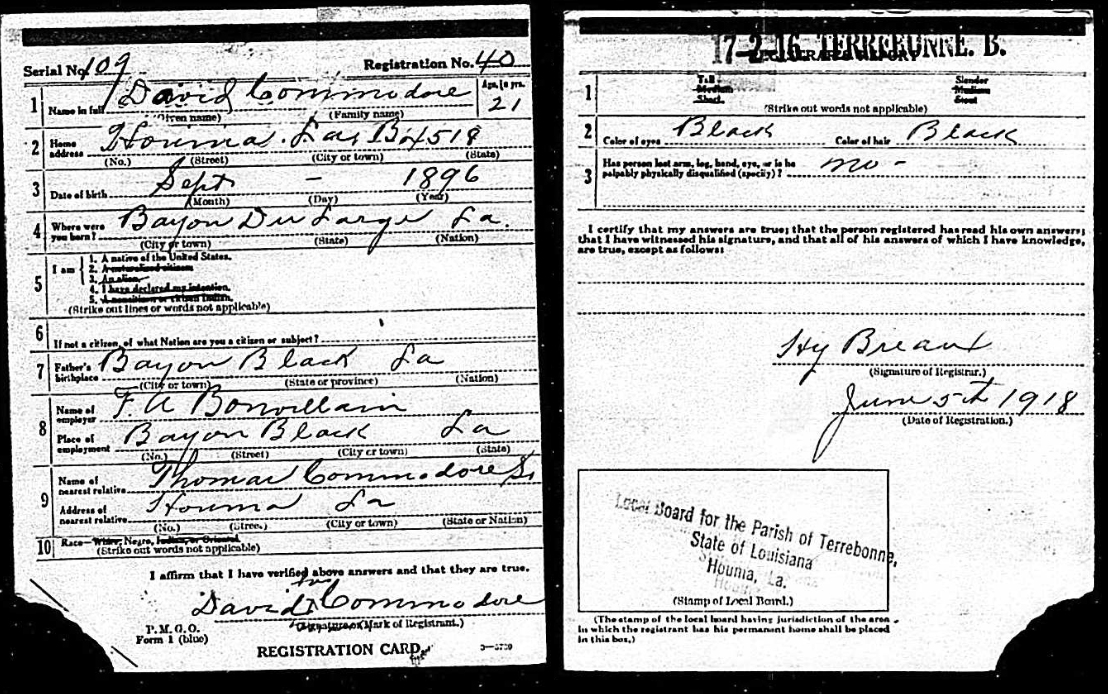 Serial No. 109 Registration No. 40
1 Name in full David Commodore Age, in yrs. 21
(Given name) (Family name)
2 Home address Houma. La, Bx 4518
(No.) (Street) (City or town) (State)
3 Date of birth Sept - 1896
(Month) (Day) (Year)
4 Where were you born? Bayou Du Large La.
(City or town) (State) (Nation)
5 I am 1. A native of the United States.
2. A naturalized citizen
3. An alien.
4. I have declared my intention.
5. A noncitizen or citizen Indian.
(Strike out lines or words not applicable)
6 If not a citizen, of what Nation are you a citizen or subject?
7 Father's birthplace Bayou Black La
(City or town) (State or province) (Nation)
8 Name of employer F. A Bonvillain
Place of employment Bayou Black La
(No.) (Street) (City or town) (State)
9 Name of nearest relative Thomas Commodore Sr
Address of nearest relative Houma La
(No.) (Street) (City or town) (State or Nation)
10 Race—White, Negro, Indian, or Oriental
(Strike out words not applicable)
I affirm that I have verified above answers and that they are true.
David Commodore
(Signature or Mark of Registrant.)
P. M. G. O.
Form 1 (blue)
REGISTRATION CARD.
17-2-16 TERREBONNE. B.
1 Tall Slender
Medium Medium
Short Stout
(Strike out words not applicable)
2 Color of eyes Black Color of hair Black
3 Has person lost arm, leg, hand, eye, or is he palpably physically disqualified (specify)? no -
I certify that my answers are true; that the person registered has read his own answers;
that I have witnessed his signature, and that all of his answers of which I have knowledge,
are true, except as follows:
Hy Breaux
(Signature of Registrar.)
June 5th 1918
(Date of Registration.)
Local Board for the Parish of Terrebonne,
State of Louisiana
Houma, La.
(Stamp of Local Board.)
(The stamp of the local board having jurisdiction of the area
in which the registrant has his permanent home shall be placed
in this box.)